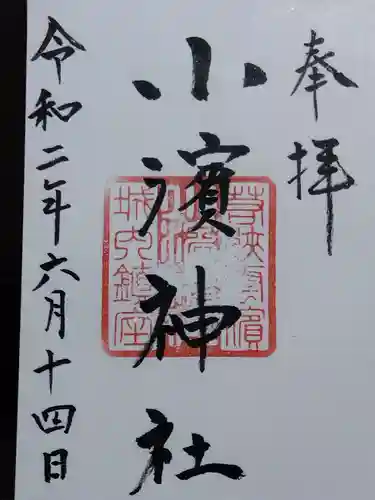 奉拝
小濱神社
令和二年六月十四日
城内鎮座